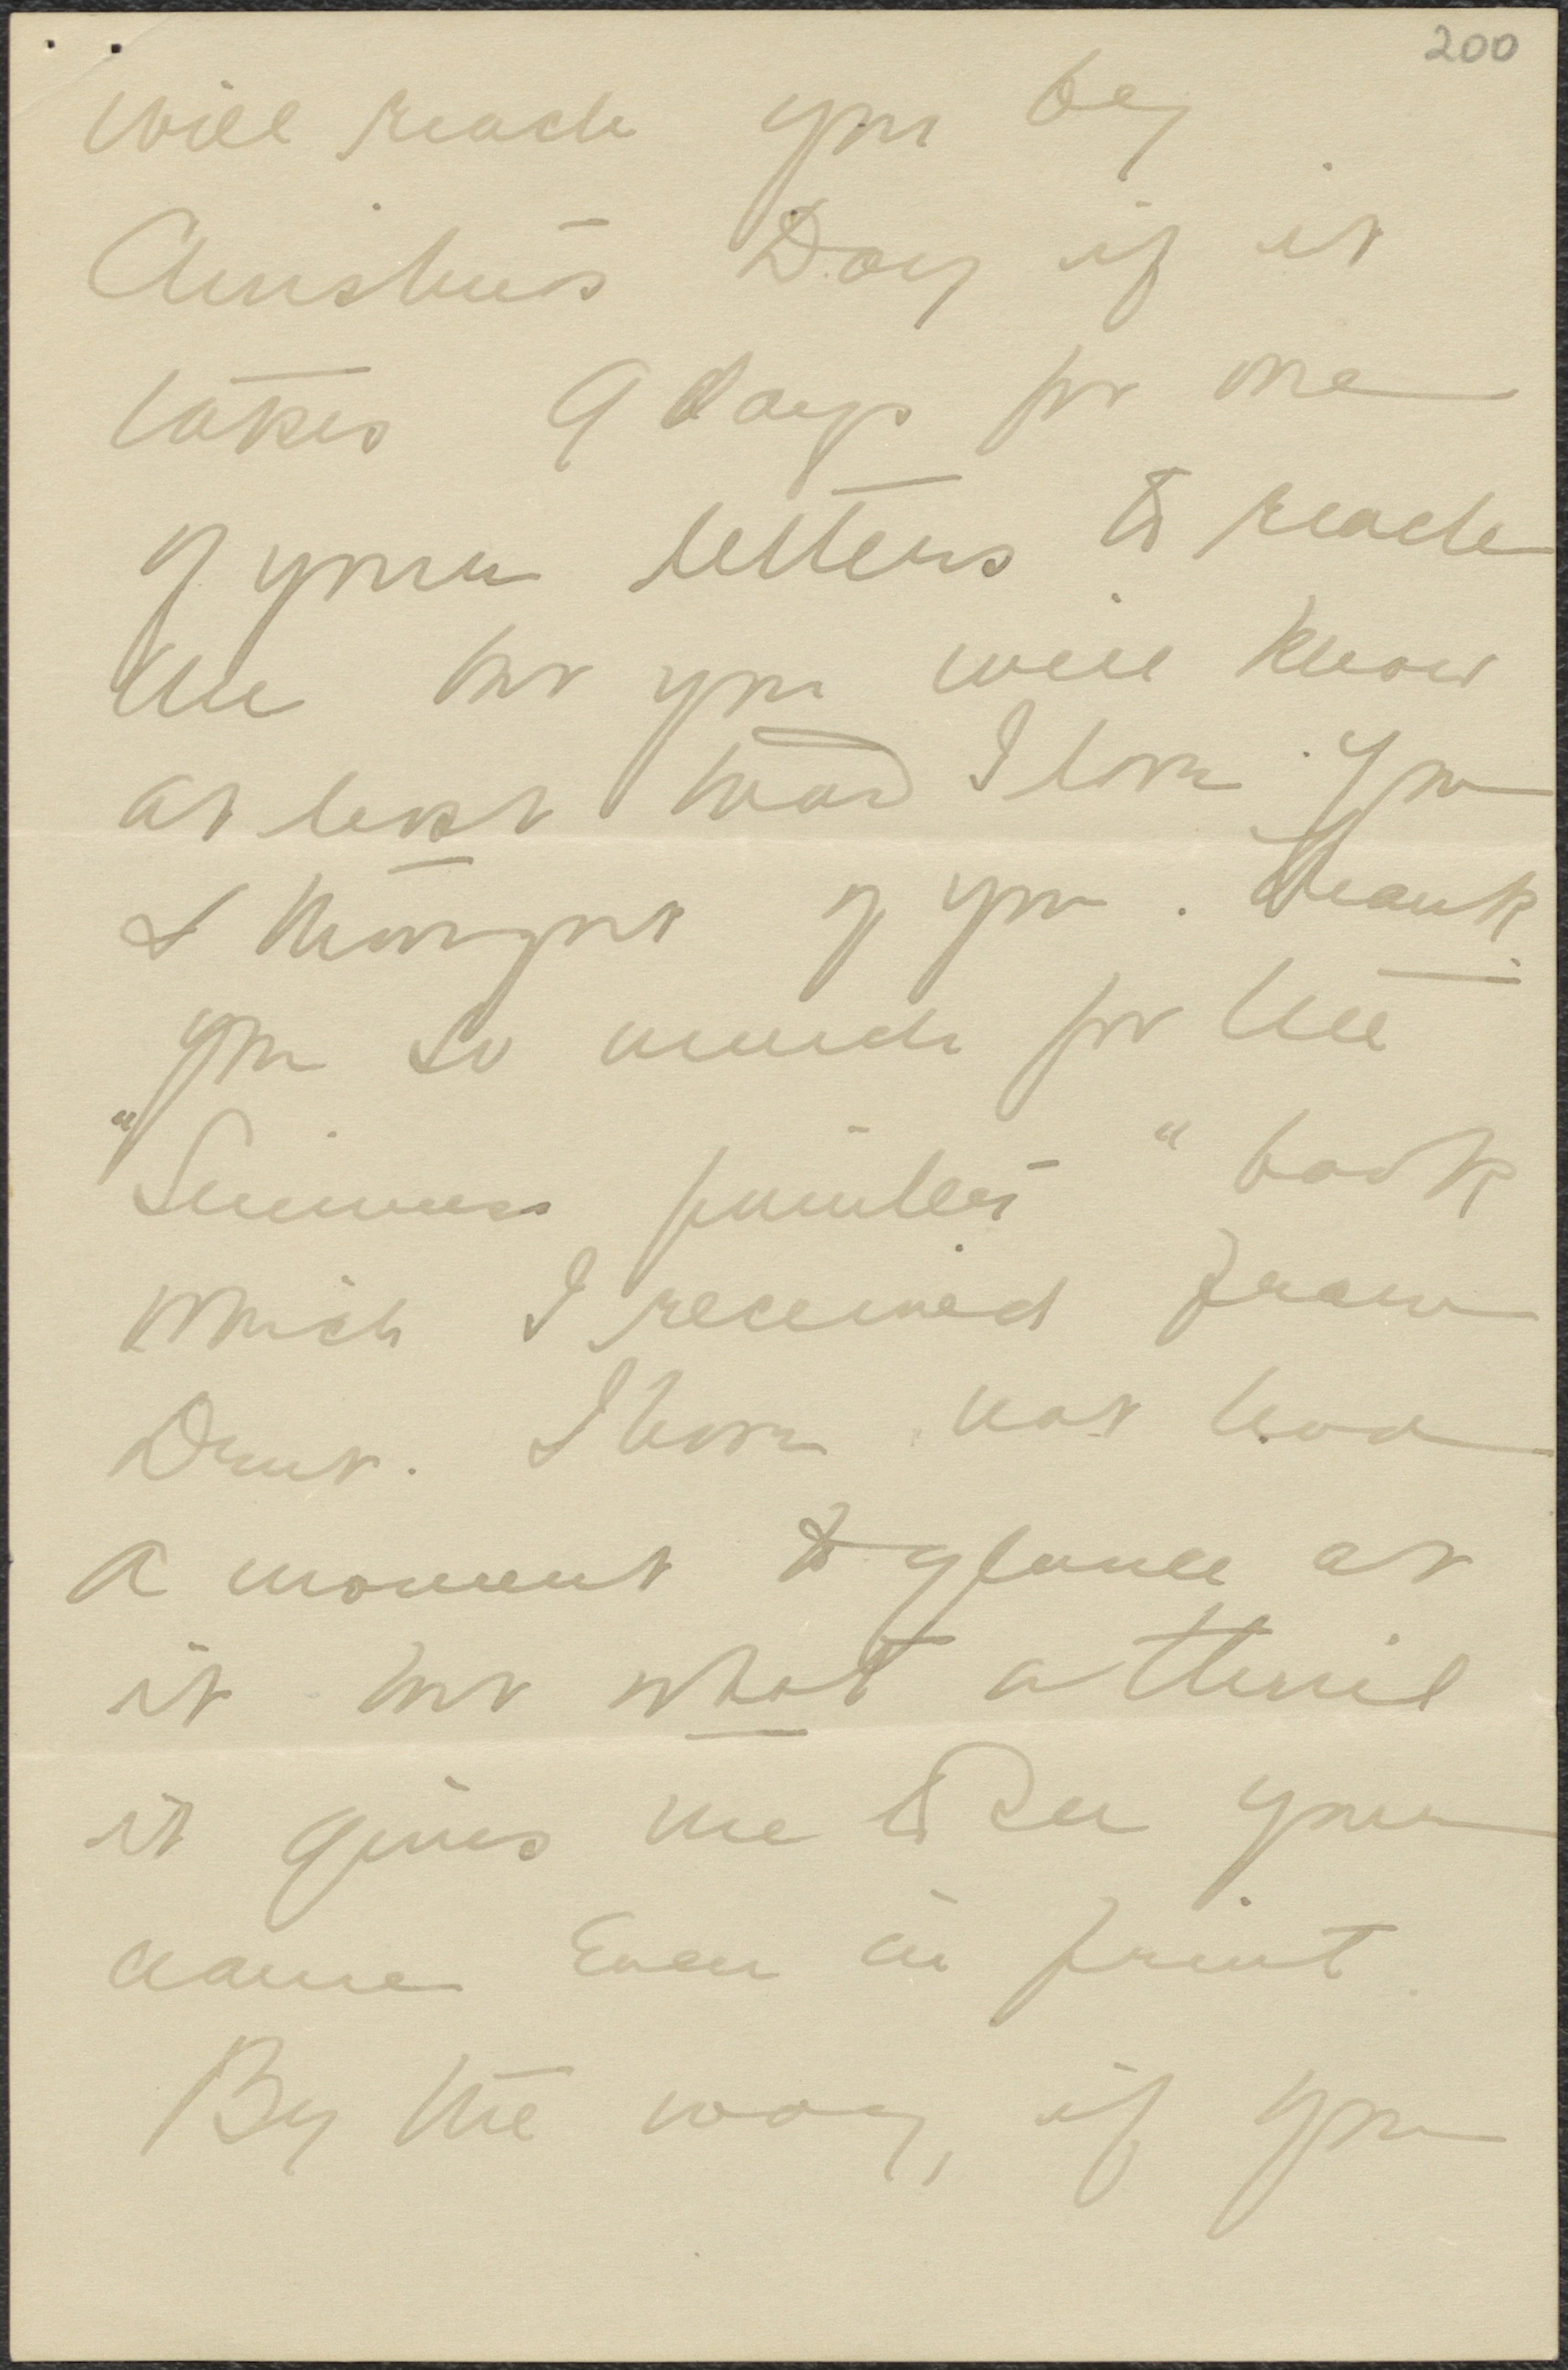 200
will reach you by
Christmas Day if it
takes 9 days for one
of your letters to reach
me but you will know
at least that I love you
& thought of you. Thank
you so much for the
"Sienese painters" book
which I received from
Dent. I have not had
a moment to glance at
it but what a thrill
it gives me to see your
name even in print.
By the way, if you